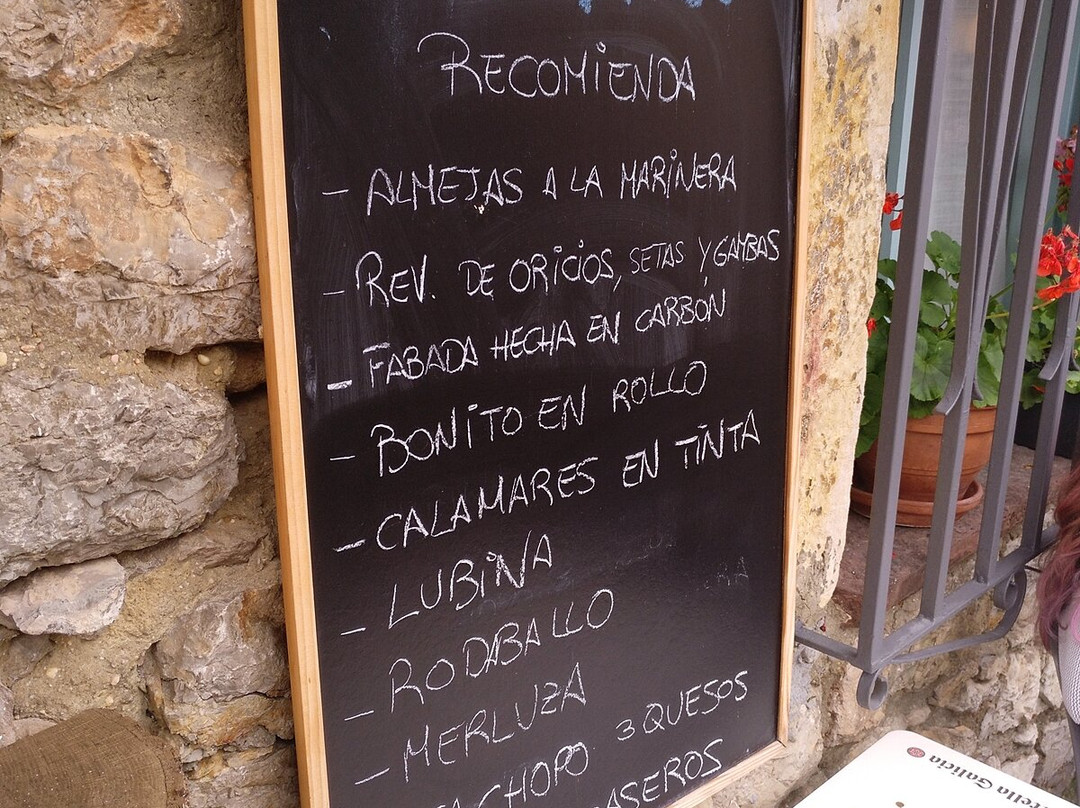 RECOMIENDA
- ALMEJAS A LA MARINERA
- REV. DE ORICIOS, SETAS Y GAMBAS
- FABADA HECHA EN CARBÓN
- BONITO EN ROLLO
- CALAMARES EN TINTA
- LUBINA
- RODABALLO
- MERLUZA
CACHOPO 3 QUESOS
CASEROS
rella Galicia